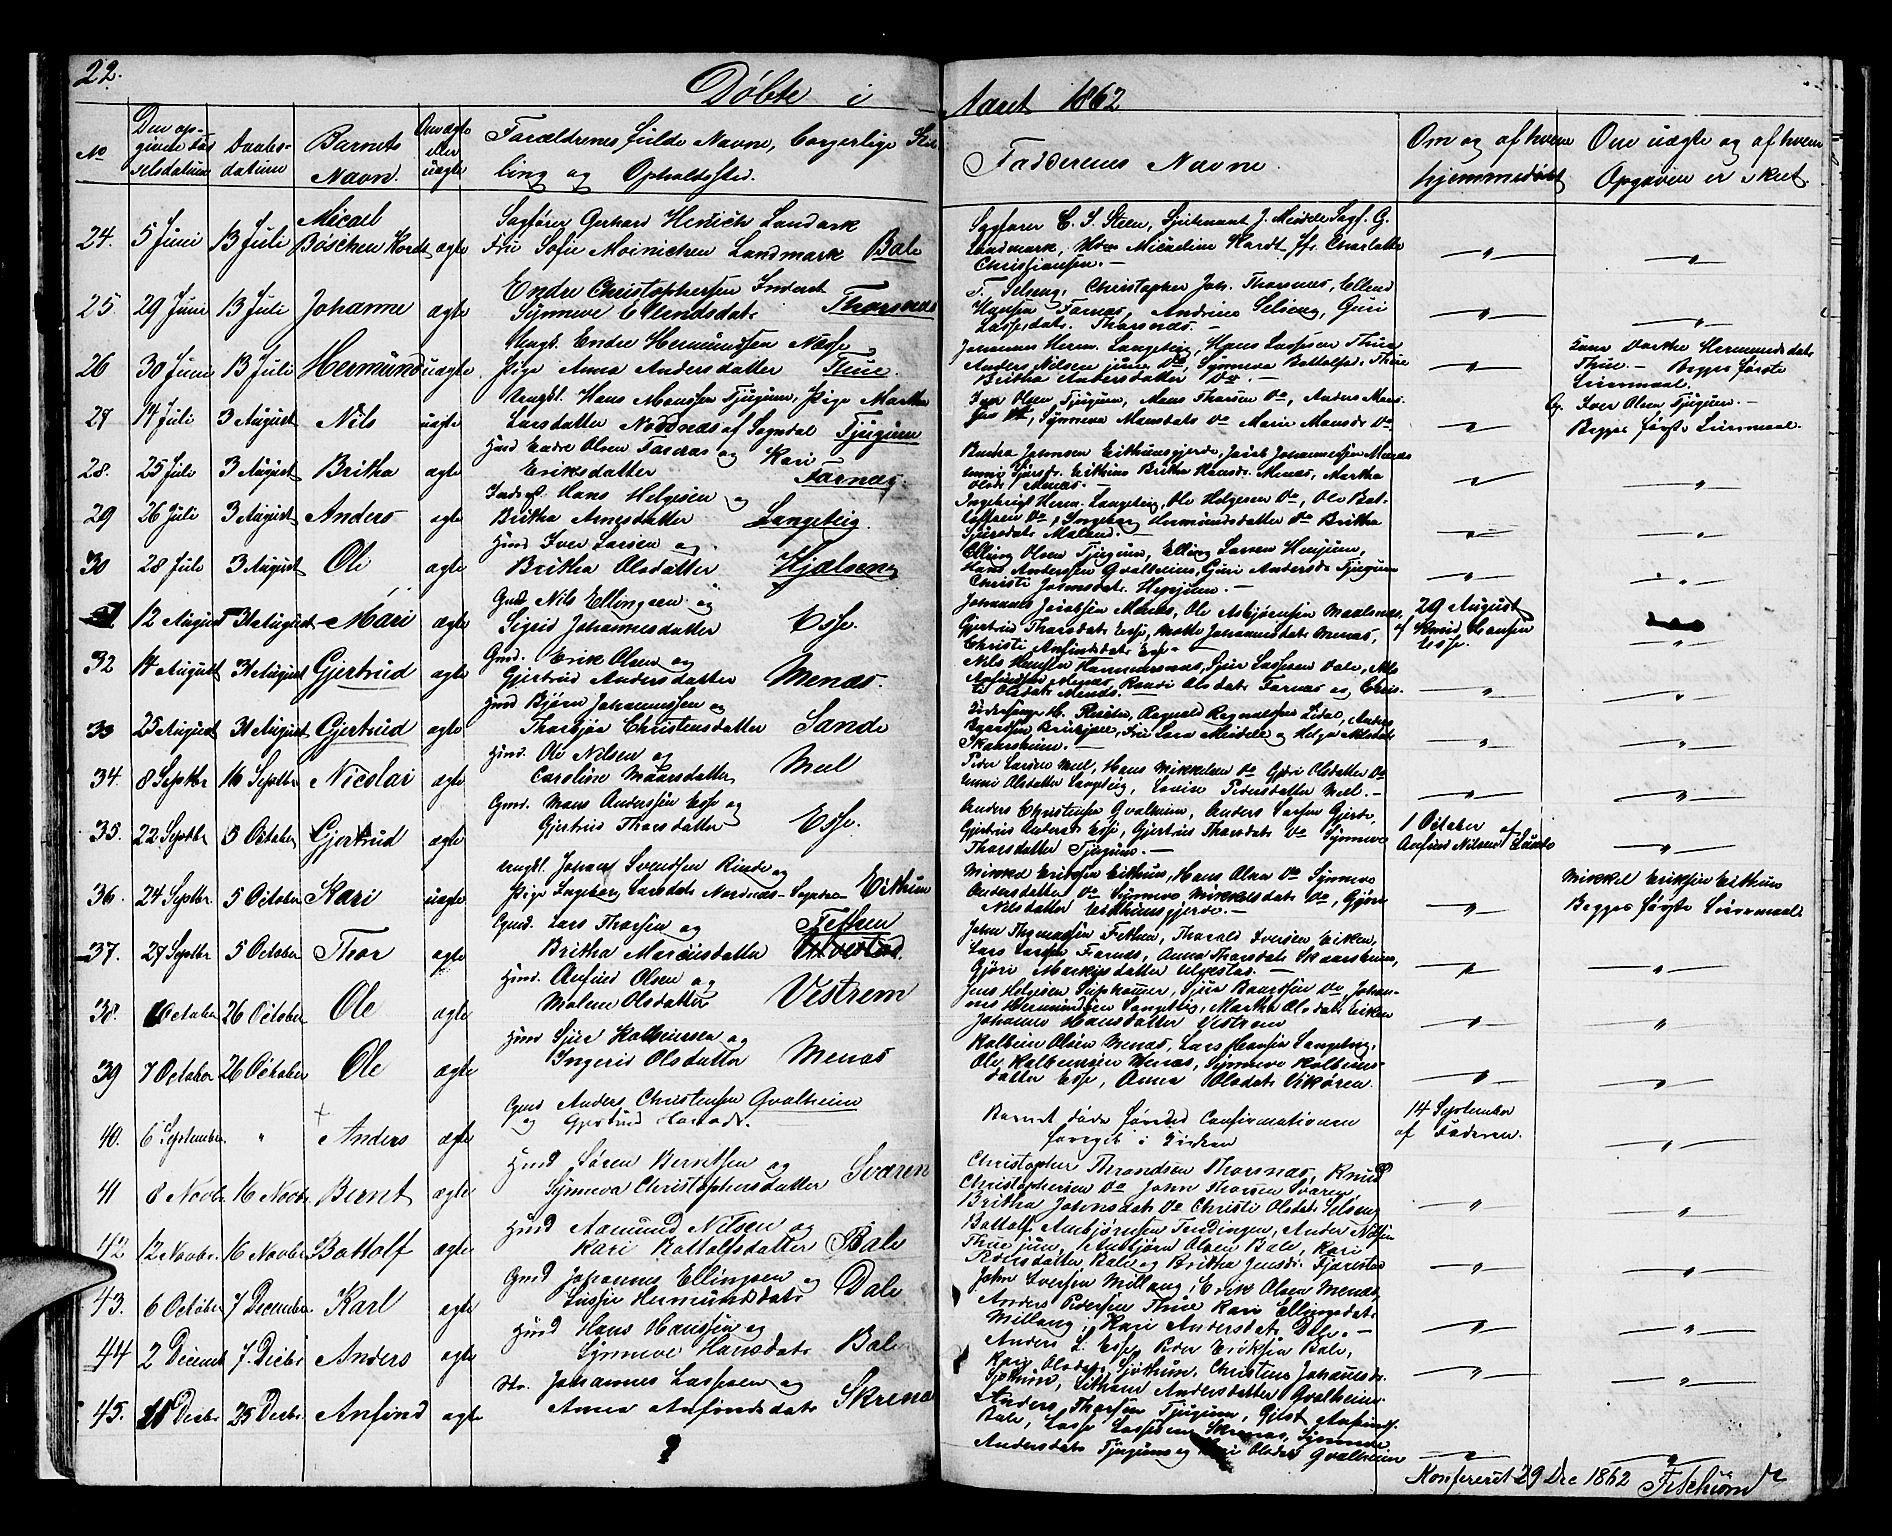 22.
Döbte i Aaret 1862
No
Den op-
givne Fød
selsdatum
Daabs-
datum
Barnets
Navn.
Om ægte
eller
uægte
Forældrenes fulde Navne, borgerlige Stil
ling og Opholdssted.
Faddernes Navne.
Om og af hvem
hjemmedøbt
Om uægte og af hvem
Opgaven er skeet.
24. 5 Juni 13 Juli Micael ægte Sagfører Gerhard Hinrich Landark
Böschen Kordt Fru Sofie Moinichen Landmark Bale
Sagfører C. S. Steen, J. Meidell Sagf. G.
Landmark, Micueline Kordt Jfr. Charlotte
Christiansen.
25. 29 Juni 13 Juli Johanne ægte Endre Christophersen Inderst
Synneve Ellendsdatr Thorsnæs
T. Selseng, Christopher Joh. Thorsnæs, Ellend
Hansen Farnæs, Andrine Selseng, Guri
Lassesdatr. Thorsnæs.
26 30 Juni 13 Juli Hermund uægte Ungk. Endre Hermundsen Næsse
Pige Anna Andersdatter Thue.
Johannes Herm. Langeteig, Hans Lassesen Thue
Anders Nilsen junr Do, Synneva Bottolfsd. Thue
Britha Andersdatter Do.
Dorthe Hermundsdatr
Thue. Begges første
Leiermaal.
27 14 Juli 3 August Nils uægte Ungk. Hans Monssen Tjugum, Pige Martha
Larsdatter Nordnæs af Sogndal Tjugum
Iver Olsen Tjugum, Mons Thorsen Do, Anders Mons-
sen Do, Synneva Monsdatr Do Marie Monsdr Do
Iver Olsen Tjugum.
Begges første Leiermaal.
28. 25 Juli 3 August Britha ægte Hmd Endre Olsen Farnæs og Kari
Eriksdatter Farnæs.
Botha Johnsen Eithunsgjerde, Jacob Johannessen Menæs
Eithun Britha Hansdr. Menæs, Martha
Olsdr Menæs.
29 26 Juli 3 August Anders ægte Inderst Hans Helgesen og
Britha Arnesdatter Langeteig.
Ingebrigt Herm. Langeteig, Ole Helgesen Do, Ole Bot-
tolfsen Do, Ingeborg Hermundsdatter Do Britha
Sjursdatr Moland.
30 28 Juli 3 August Ole ægte Hmd Iver Larsen og
Britha Olsdatter Hjælseng
Elling Olsen Tjugum, Elling Larsen Henjum,
Hans Andersen Qvalheim, Guri Andersdr Tjugum
Christi Johnsdatr. Henjum.
12 August 31 August Mari ægte Gmd Nils Ellingsen og
Sigrid Johannesdatter Esse.
Johannes Jacobsen Menæs, Ole Asbjørnsen Maalsnæs,
Gjertrud Thorsdatr Esse, Johannesdatr Menæs,
Christi Anfindsdatr Esse
29 August
af Knud Hansen
Esse
32 14 August 31 August Gjertrud ægte Gmd. Erik Olsen og
Gjertrud Andersdatter Menæs.
Nils Hansen Hammersnæs, Sjur Lassesen Dale, Nils
Anfindsen Menæs, Randi Olsdatr Farnæs og Chris-
ti Olsdatr Menæs.
33 25 August 31 August Gjertrud ægte Hmd Bjørn Johannessen og
Thorbjør Christensdatter Sande
Ragnald Ragnaldsen Lidal, Anders
Fru Lara Meidell og Helga Nilsdatr
Skaarsheim.
34. 8 Septbr 16 Septbr Nicolai ægte Hmd. Ole Nilsen og
Caroline Monsdatter Mæl
Peder Larsen Mæl, Hans Mikkelsen Do Gjøri Olsdatter Do
Olsdatter Langeteig, Lovise Pedersdatter Mæl.
35. 22 Septbr 5 October Gjertrud ægte Gmd. Mons Anderssen Esse og
Gjertrud Thorsdatter Esse.
Anders Christensen Qvalheim, Anders Larsen Gjerde,
Gjertrud Andersd Esse, Gjertrud Thorsdatr Do Synneve
Thorsdatter Tjugum.
1 October af
Anfind Nilsen Sande
36. 24 Septbr 5 October Kari uægte Ungk. Johan Svendsen Rinde og
Pige Ingeborg Larsdatr Nordnæs Sogndal Eithun
Mikkel Eriksen Eithun, Hans Olsen Do Synneve
Andersdatter Do Synneve Mikkelsdatr Do, Gjøri
Nilsdatter Eithunsgjerde.
Mikkel Eriksen Eithun
Begges første Leiermaal
37. 27 Septbr 5 October Thor ægte Gmd. Lars Thorsen og Fethen
Britha Marcusdatter Ulvestad.
John Thomassen Fethen, Thorald Iversen Eiken,
Lars Larsen Farnæs, Anna Thorsdatr Skaarsheim,
Gjøri Markusdatter Ulvestad.
38. October 26 October Ole ægte Hmd. Anfind Olsen og
Malene Olsdatter Vestrem
Jens Helgesen Suphammer, Sjur Baardsen Do, Johan-
nes Hermundsen Langeteig, Martha Olsdatr Eiken
Johanne Hansdatter Vestrem
39 7 October 26 October Ole ægte Hmd Sjur Kolbensen og
Ingerid Olsdatter Menæs
Kolbein Olsen Menæs, Lars Hansen Langeteig,
Ole Kolbensen Menæs, Synneve Kolbens-
datter Esse, Anna Olsdatr Vikøren.
40. 6 September " Anders ægte Gmd Anders Christensen Qvalheim
og Gjertrud
Barnet døde førend Confirmationen
foregik i Kirken
14 September
af Faderen.
41 8 Novbr 16 Novbr Bernt ægte Hmd Søren Berntsen og
Synneva Christophersdatter Sværen
Christopher Throndsen Thorsnæs, Knud
Christophersen Do John Thorsen Sværen
Britha Johnsdatr Do Christi Olsdatr Selseng
42 12 Novbr. 16 Novbr Bottolf ægte Hmd Aamund Nilsen og
Kari Bottolfsdatter Bale
Bottolf Ambjørnsen Tendingen, Anders Nilsen
Thue jun, Ambjørn Olsen Bale, Kari
Pedersdatter Bale og Britha Jensdr. Fjærestad
43. 6 October 7 December Karl ægte Gmd Johannes Ellingsen og
Lussie Hermundsdatr Dale
John Iversen Millang, Erik Olsen Menæs,
Anders Pedersen Thue Kari Ellingsdatr
Millang, Kari Andersdatr Dale.
44 2 Decembr 7. Decbr Anders ægte Hmd Hans Hanssen og
Synneve Hansdatr Bale
Anders L. Esse, Peder Eriksen Bale,
Kari Olsdatr Sjøthun, Christine Johannesdr.
Sjøthun, Andersdatter Qvalheim
45. 11 Decbr. 25 Decbr. Anfind ægte Johannes Lassesen og
Anna Anfindsdatr Skrenæs
Anders Thorsen Tjugum, Anfinds.
Bale, Lasse Lassesen Skrenæs, Synneve
Andersdatr Tjugum og Olsdatr Qvalheim
Konfereret 29 Dec 1862